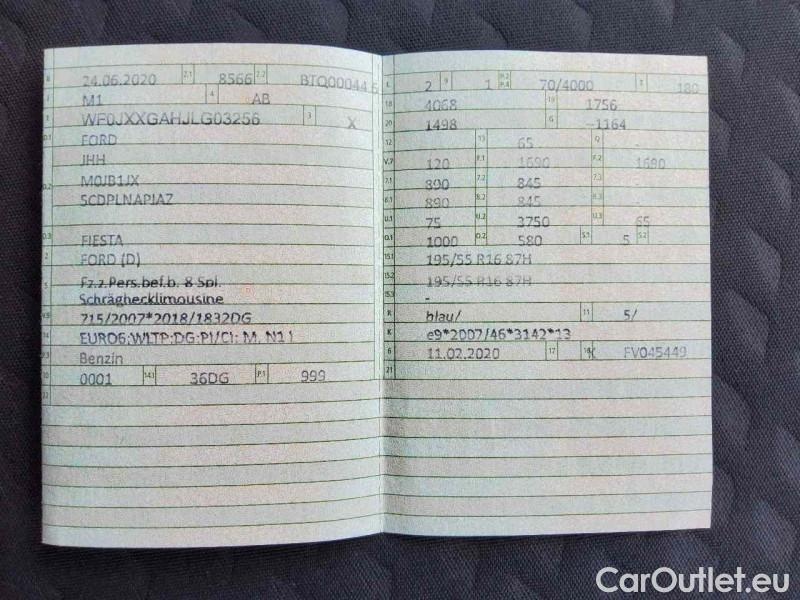 B 24.06.2020 2.1 8566 2.2 BTQ00044 5
J M1 4 AB
E WF0JXXGAHJLG03256 3 X
D.1 FORD
JHH
D.2 M0JB1JX
5CDPLNAPJAZ
D.3 FIESTA
2 FORD (D)
5 Fz.z.Pers.bef.b. 8 Spl.
Schräghecklimousine
V.9 715/2007*2018/1832DG
14 EURO6;WLTP;DG;PI/CI; M, N1 I
P.3 Benzin
10 0001 14.1 36DG P.1 999
22
L 2 9 1 P.2 P.4 70/4000 T 180
18 4068 19 1756
20 1498 G -1164
12 - 13 65 Q -
V.7 120 F.1 1690 F.2 1690
7.1 890 7.2 845 7.3 -
8.1 890 8.2 845 8.3 -
U.1 75 U.2 3750 U.3 65
O.1 1000 O.2 580 S.1 5 S.2 -
15.1 195/55 R16 87H
15.2 195/55 R16 87H
15.3 -
R blau/ 11 5/
K e9*2007/46*3142*13
6 11.02.2020 17 K 16 FV045449
21
CarOutlet.eu